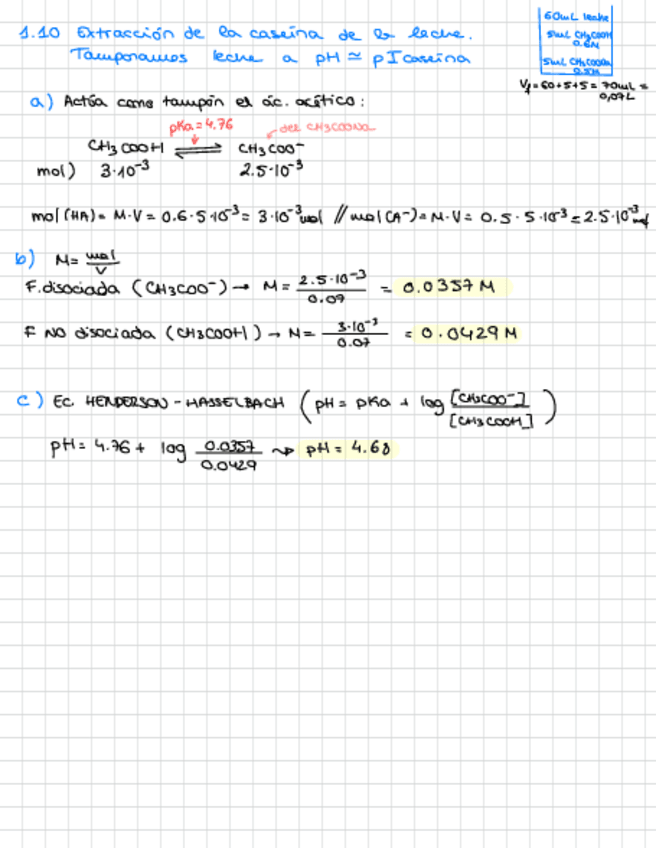 1.10 Extracción de la caseína de la leche.
Tamponamos leche a pH ≃ pI caseína
60mL leche
5mL CH3COOH
0.6M
5mL CH3COONa
0.5M
Vf = 60+5+5 = 70mL =
0,07L
a) Actúa como tampón el ác. acético:
pKa = 4.76
del CH3COONa
CH3COOH ⇌ CH3COO⁻
mol) 3·10⁻³ 2.5·10⁻³
mol (HA) = M·V = 0.6·5·10⁻³ = 3·10⁻³ mol // mol (A⁻) = M·V = 0.5·5·10⁻³ = 2.5·10⁻³ mol
b) M = mol/V
F. disociada (CH3COO⁻) → M = 2.5·10⁻³/0.07 = 0.0357 M
F NO disociada (CH3COOH) → M = 3·10⁻³/0.07 = 0.0429 M
c) Ec. HENDERSON - HASSELBACH (pH = pKa + log [CH3COO⁻]/[CH3COOH])
pH = 4.76 + log 0.0357/0.0429 ⇝ pH = 4.68